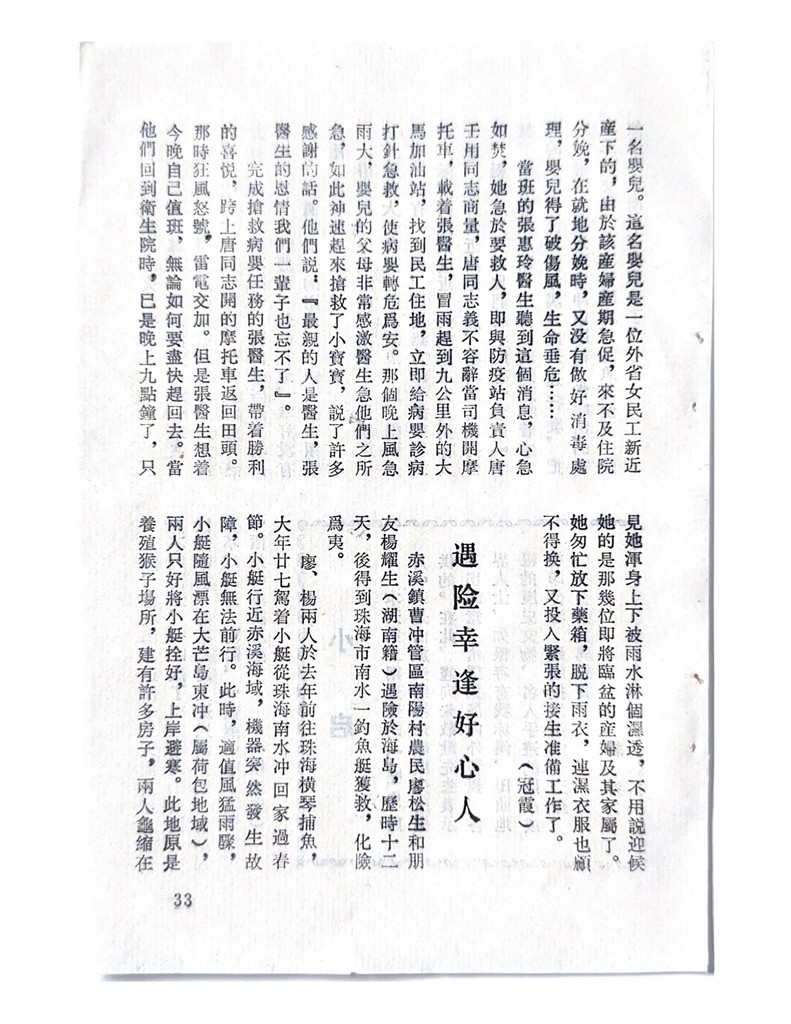 一名嬰兒。這名嬰兒是一位外省女民工新近
産下的，由於該産婦産期急促，來不及住院
分娩，在就地分娩時，又没有做好消毒處
理，嬰兒得了破傷風，生命垂危……
當班的張惠玲醫生聽到這個消息，心急
如焚，她急於要救人，即與防疫站負責人唐
壬用同志商量，唐同志義不容辭當司機開摩
托車，載着張醫生，冒雨趕到九公里外的大
馬加油站，找到民工住地，立即給病嬰診病
打針急救，使病嬰轉危爲安。那個晚上風急
雨大，嬰兒的父母非常感激醫生急他們之所
急，如此神速趕來搶救了小寶寶，説了許多
感謝的話。他們説：『最親的人是醫生，張
醫生的恩情我們一輩子也忘不了』。
完成搶救病嬰任務的張醫生，帶着勝利
的喜悦，跨上唐同志開的摩托車返回田頭。
那時狂風怒號，雷電交加。但是張醫生想着
今晚自己值班，無論如何要盡快趕回去。當
他們回到衛生院時，已是晚上九點鐘了，只
見她渾身上下被雨水淋個濕透，不用説迎候
她的是那幾位即將臨盆的産婦及其家屬了。
她匆忙放下藥箱，脱下雨衣，連濕衣服也顧
不得换，又投入緊張的接生准備工作了。
（冠霞）
遇险幸逢好心人
赤溪鎮曹冲管區南陽村農民廖松生和朋
友楊耀生（湖南籍）遇險於海島，歷時十二
天，後得到珠海市南水一釣魚艇獲救，化險
爲夷。
廖、楊兩人於去年前往珠海橫琴捕魚，
大年廿七駕着小艇從珠海南水冲回家過春
節。小艇行近赤溪海域，機器突然發生故
障，小艇無法前行。此時，適值風猛雨驟，
小艇隨風漂在大芒島東冲（屬荷包地域），
兩人只好將小艇拴好，上岸避寒。此地原是
養殖猴子場所，建有許多房子，兩人龜縮在
33